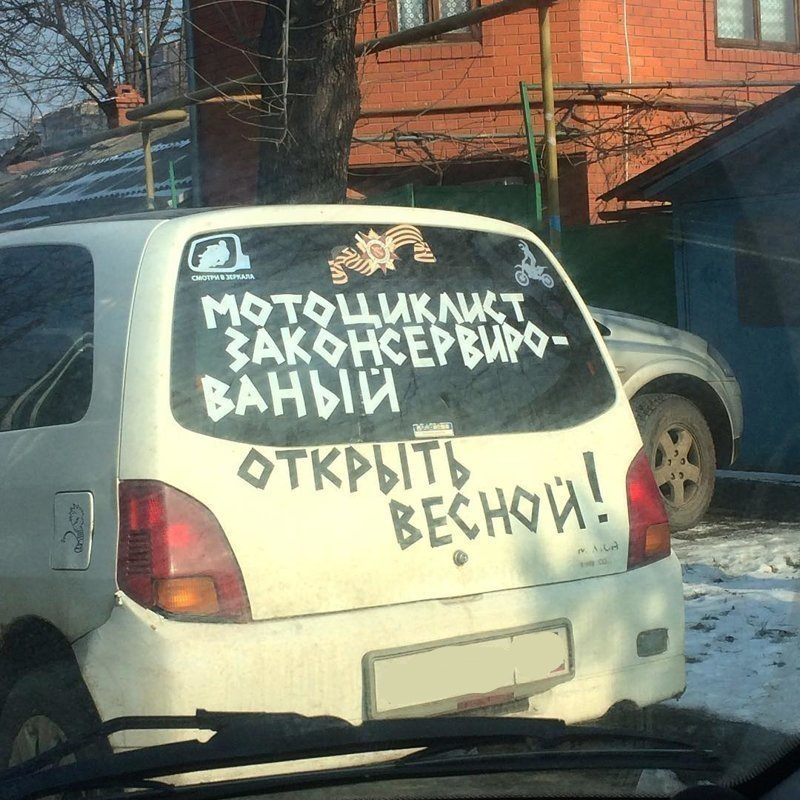 СМОТРИ В ЗЕРКАЛА
МОТОЦИКЛИСТ
ЗАКОНСЕРВИРО-
ВАНЫЙ
ОТКРЫТЬ
ВЕСНОЙ!